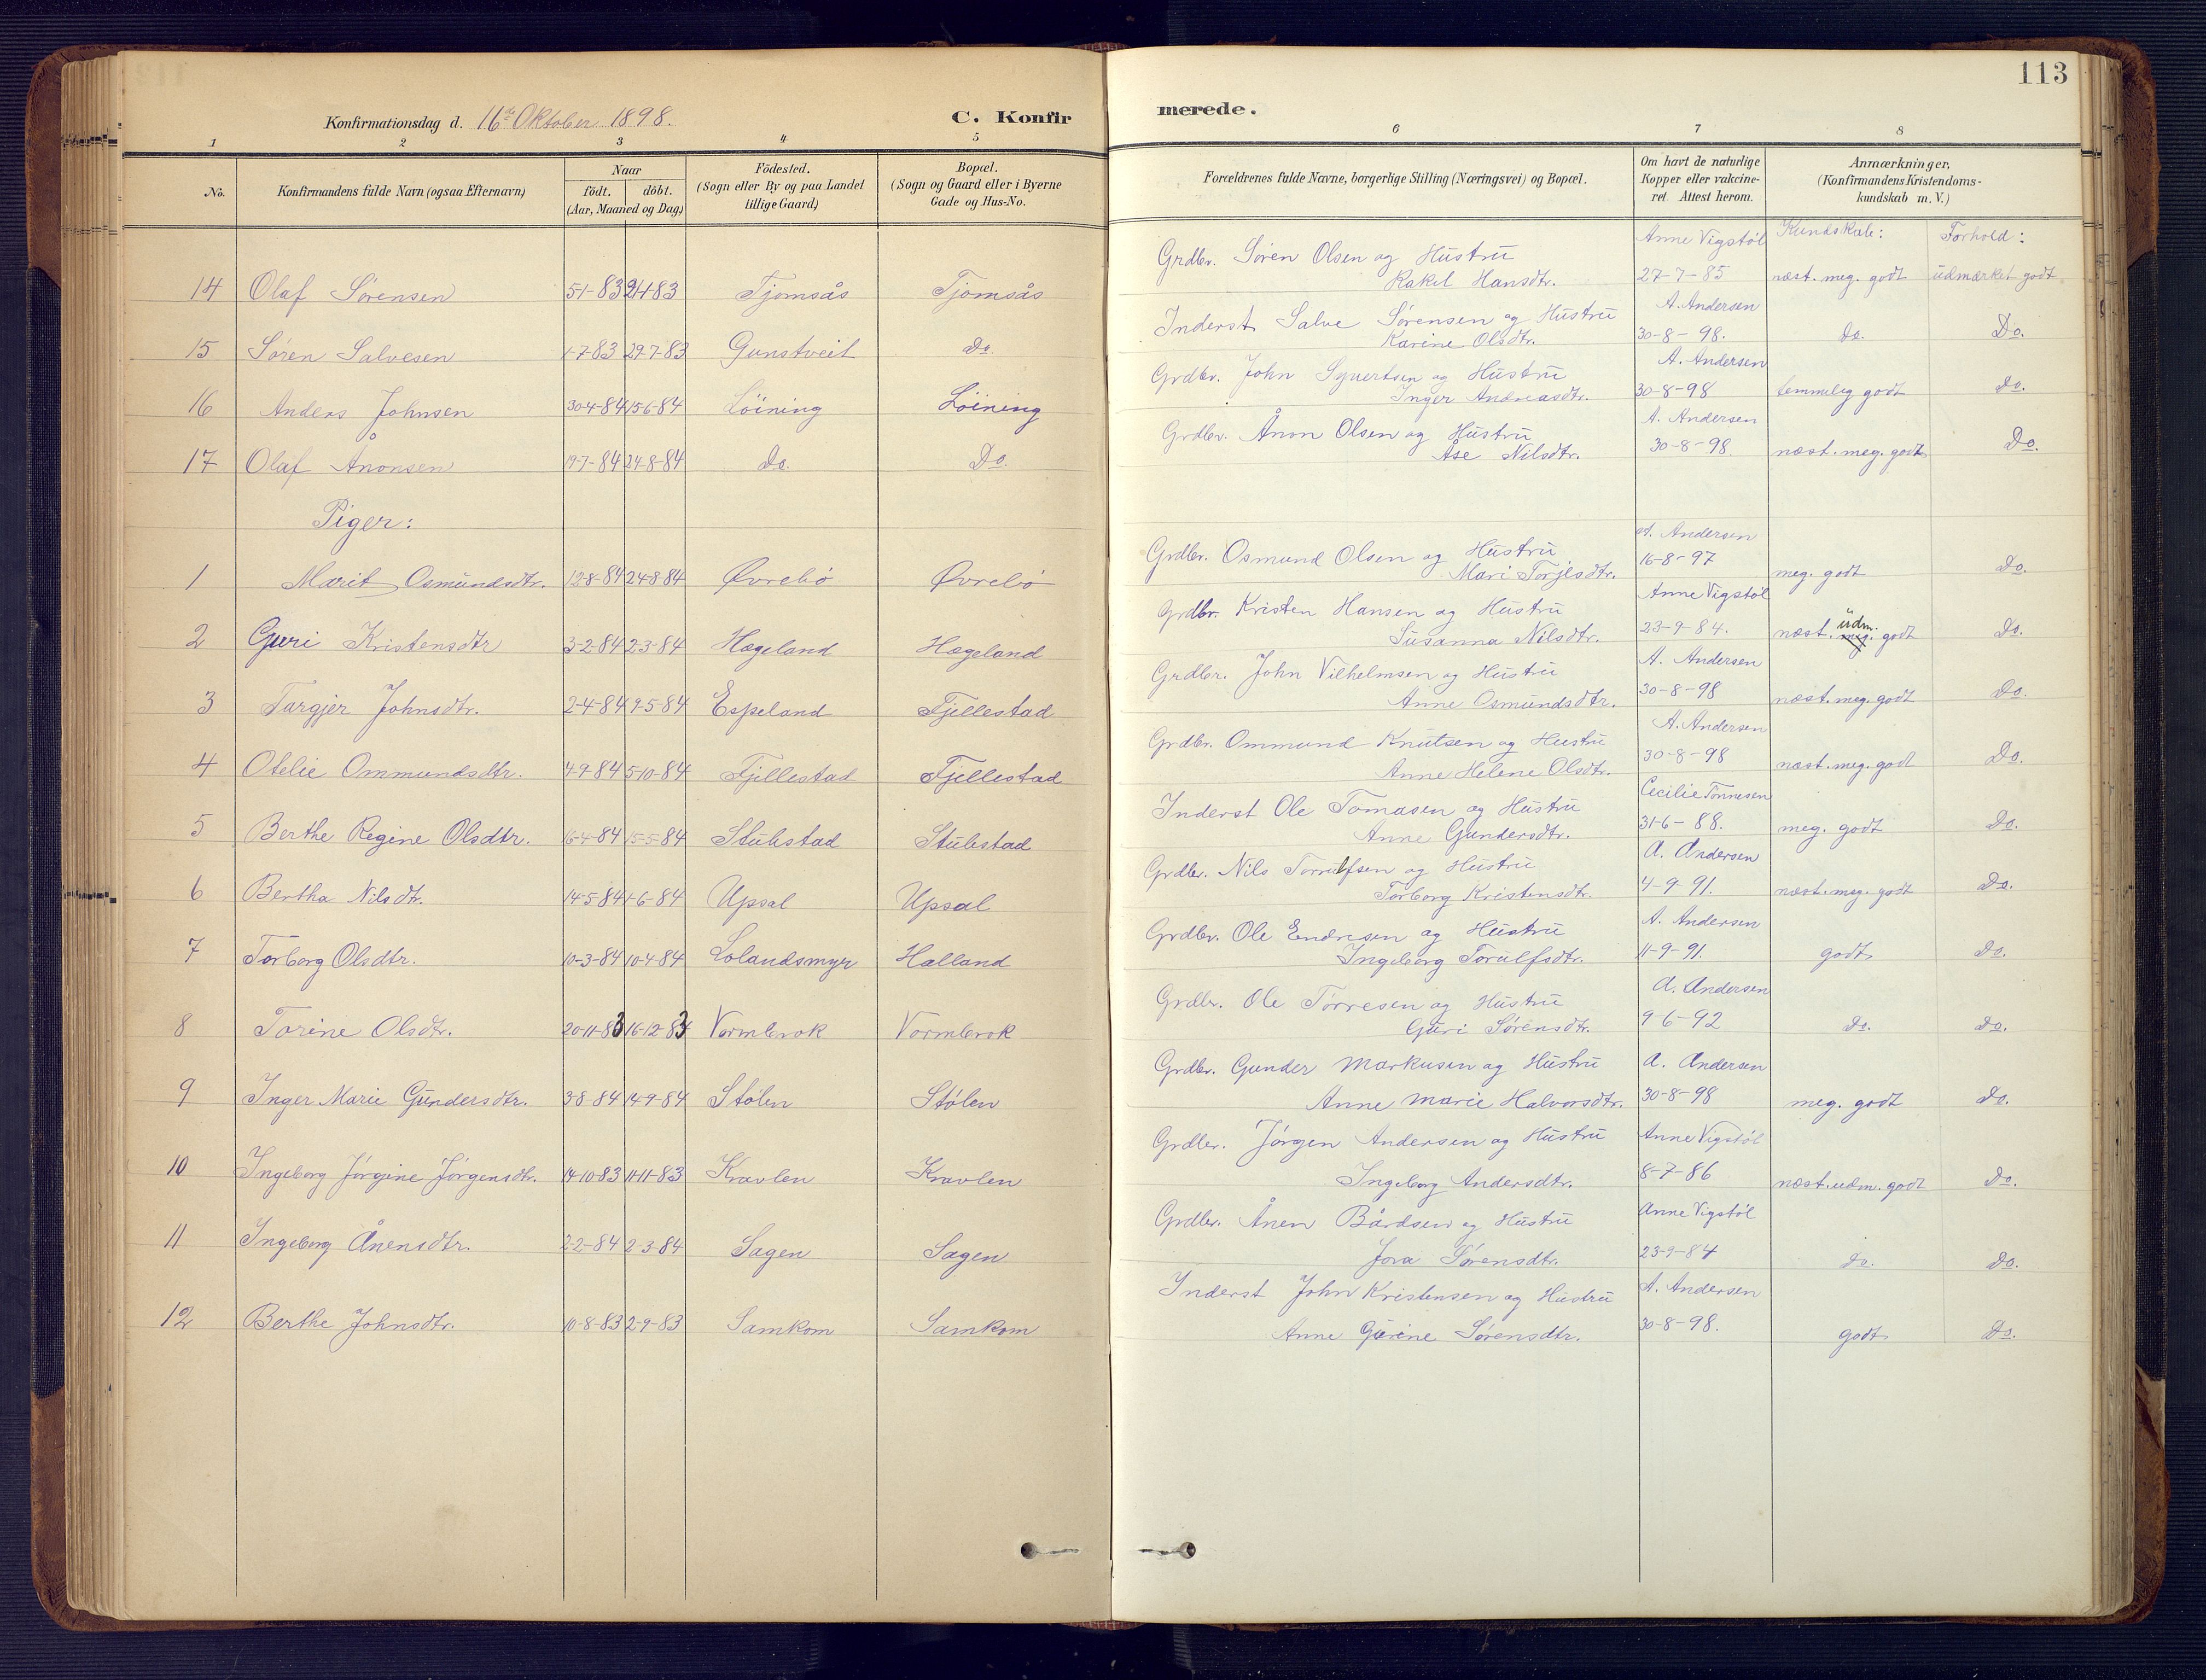 113
Konfirmationsdag d. 16de Oktober 1898.
C. Konfirmerede.
1 2 3 4 5 6 7 8
No.
Konfirmandens fulde Navn (ogsaa Efternavn)
Naar
födt. döbt.
(Aar, Maaned og Dag)
Födested.
(Sogn eller By og paa Landet
tillige Gaard)
Bopæl.
(Sogn og Gaard eller i Byerne
Gade og Hus-No.
Forældrenes fulde Navne, borgerlige Stilling (Næringsvei) og Bopæl.
Om havt de naturlige
Kopper eller vakcine-
ret. Attest herom.
Anmærkninger.
(Konfirmandens Kristendoms-
kundskab m. V.)
Kundskab: Forhold:
14 Olaf Sørensen 5-1-83 21-1-83 Tjomsås Tjomsås Grdbr. Søren Olsen og Hustru Anne Vigstøl
Rakel Hansdtr. 27-7-85 næst. meg. godt udmærket godt
15 Søren Salvesen 1-7-83 29-7-83 Gunstveit Do. Inderst Salve Sørensen og Hustru A. Andersen
Karine Olsdtr. 30-8-98. Do. Do.
16 Anders Johnsen 30-4-84 15-6-84 Löining Löining Grdbr. John Syvertsen og Hustru A. Andersen
Inger Andreasdtr. 30-8-98 temmelig godt Do.
17 Olaf Ånonsen 19-7-84 24-8-84 Do. Do. Grdbr. Ånon Olsen og Hustru A. Andersen
Åse Nilsdtr. 30-8-98 næst. meg. godt Do.
Piger:
1 Marit Osmundsdtr. 12-8-84 24-8-84 Øvrebö Øvrebö Grdbr. Osmund Olsen og Hustru A. Andersen
Mari Torjesdtr. 16-8-97 meg. godt Do.
2 Guri Kristensdtr 3-2-84 2-3-84 Hægeland Hægeland Grdbr. Kristen Hansen og Hustru Anne Vigstøl
Susanna Nilsdtr. 23-9-84. næst. meg. udm. godt Do.
3 Targjer Johnsdtr. 2-4-84 9-5-84 Espeland Fjellestad Grdbr. John Vilhelmsen og Hustru A. Andersen
Anne Osmundsdtr. 30-8-98 næst. meg. godt Do.
4 Otelie Ommundsdtr. 4-9-84 5-10-84 Fjellestad Fjellestad Grdbr. Ommund Knutsen og Hustru A. Andersen
Anne Helene Olsdtr. 30-8-98 næst. meg. godt Do.
5 Berthe Regine Olsdtr. 16-4-84 15-5-84 Stubstad Stubstad Inderst Ole Tomasen og Hustru Cecilie Tönnesen
Anne Gundersdtr. 31-6-88. meg. godt Do.
6 Bertha Nilsdtr. 14-5-84 1-6-84 Upsal Upsal Grdbr. Nils Torrulfsen og Hustru A. Andersen
Torborg Kristensdtr. 4-9-91. næst. meg. godt Do.
7 Torborg Olsdtr. 10-3-84 10-4-84 Lolandsmyr Halland Grdbr. Ole Endresen og Hustru A. Andersen
Ingeborg Torulfsdtr. 11-9-91. godt Do.
8 Torine Olsdtr. 20-11-83 16-12-83 Vormbrok Vormbrok Grdbr. Ole Tørresen og Hustru A. Andersen
Guri Sørensdtr. 9-6-92 Do. Do.
9 Inger Marie Gundersdtr. 3-8-84 14-9-84 Stölen Stölen Grdbr. Gunder Markusen og Hustru A. Andersen
Anne Marie Halvorsdtr. 30-8-98 meg. godt Do.
10 Ingeborg Jörgine Jörgensdtr. 14-10-83 11-11-83 Kravlen Kravlen Grdbr. Jörgen Andersen og Hustru Anne Vigstøl
Ingeborg Andersdtr. 8-7-86 næst. udm. godt Do.
11 Ingeborg Ånensdtr. 2-2-84 2-3-84 Sagen Sagen Grdbr. Ånen Bårdsen og Hustru Anne Vigstøl
Jora Sørensdtr. 23-9-84 Do. Do.
12 Berthe Johnsdtr. 10-8-83 2-9-83 Samkom Samkom Inderst John Kristensen og Hustru A. Andersen
Anne Gurine Sørensdtr. 30-8-98. godt Do.